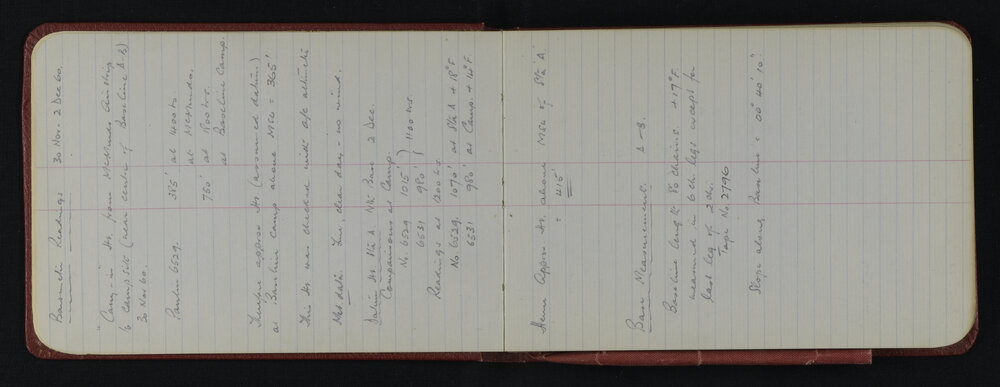 Barometric Readings 30 Nov. 2 Dec 60.
"Carry-in" Ht. from McMurdo Airstrip
to Camp Site (near centre of Baseline A-B)
30 Nov 60.
Paulin 6529. 385' at 1400 hrs.
at McMurdo.
750' at 1800 hrs.
at Baseline Camp.
Therefore approx Ht (assumed datum)
at Baseline Camp above MSL = 365'
This Ht was checked with a/c altimeter
Met data Fine, clear day - no wind.
Datum Ht. Stn A Nth Base 2 Dec.
Comparisons at Camp.
No. 6529 1015' } 1100 hrs.
6531 980' }
Readings at 1200 hrs
No 6529. 1070' at Stn A + 18°F
6531 980' at Camp + 14°F
Hence Approx Ht. above MSL of Stn A
= 415'
Base Measurement. A-B.
Baseline length 86 chains. +17°F.
measured in 6 ch. legs except for
last leg of 2 ch.
Tape No. 2796
Slope along Baseline < 00° 40' 10"